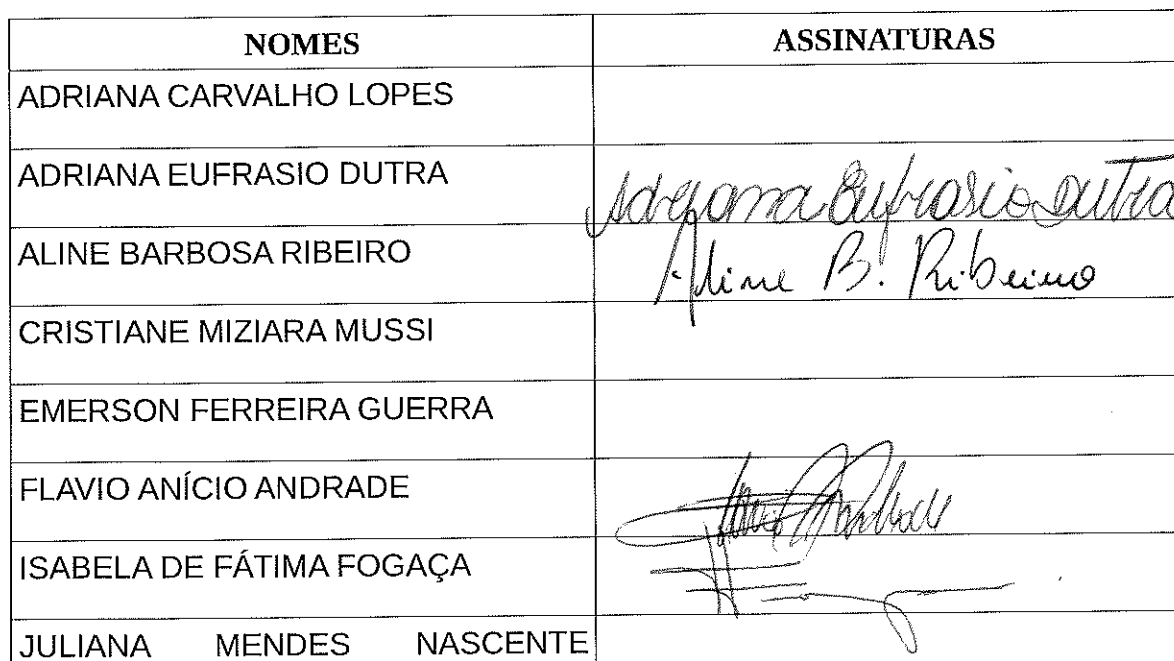 NOMES ASSINATURAS
ADRIANA CARVALHO LOPES
ADRIANA EUFRASIO DUTRA Adriana Eufrasio Dutra
ALINE BARBOSA RIBEIRO Aline B. Ribeiro
CRISTIANE MIZIARA MUSSI
EMERSON FERREIRA GUERRA
FLAVIO ANÍCIO ANDRADE
ISABELA DE FÁTIMA FOGAÇA
JULIANA MENDES NASCENTE